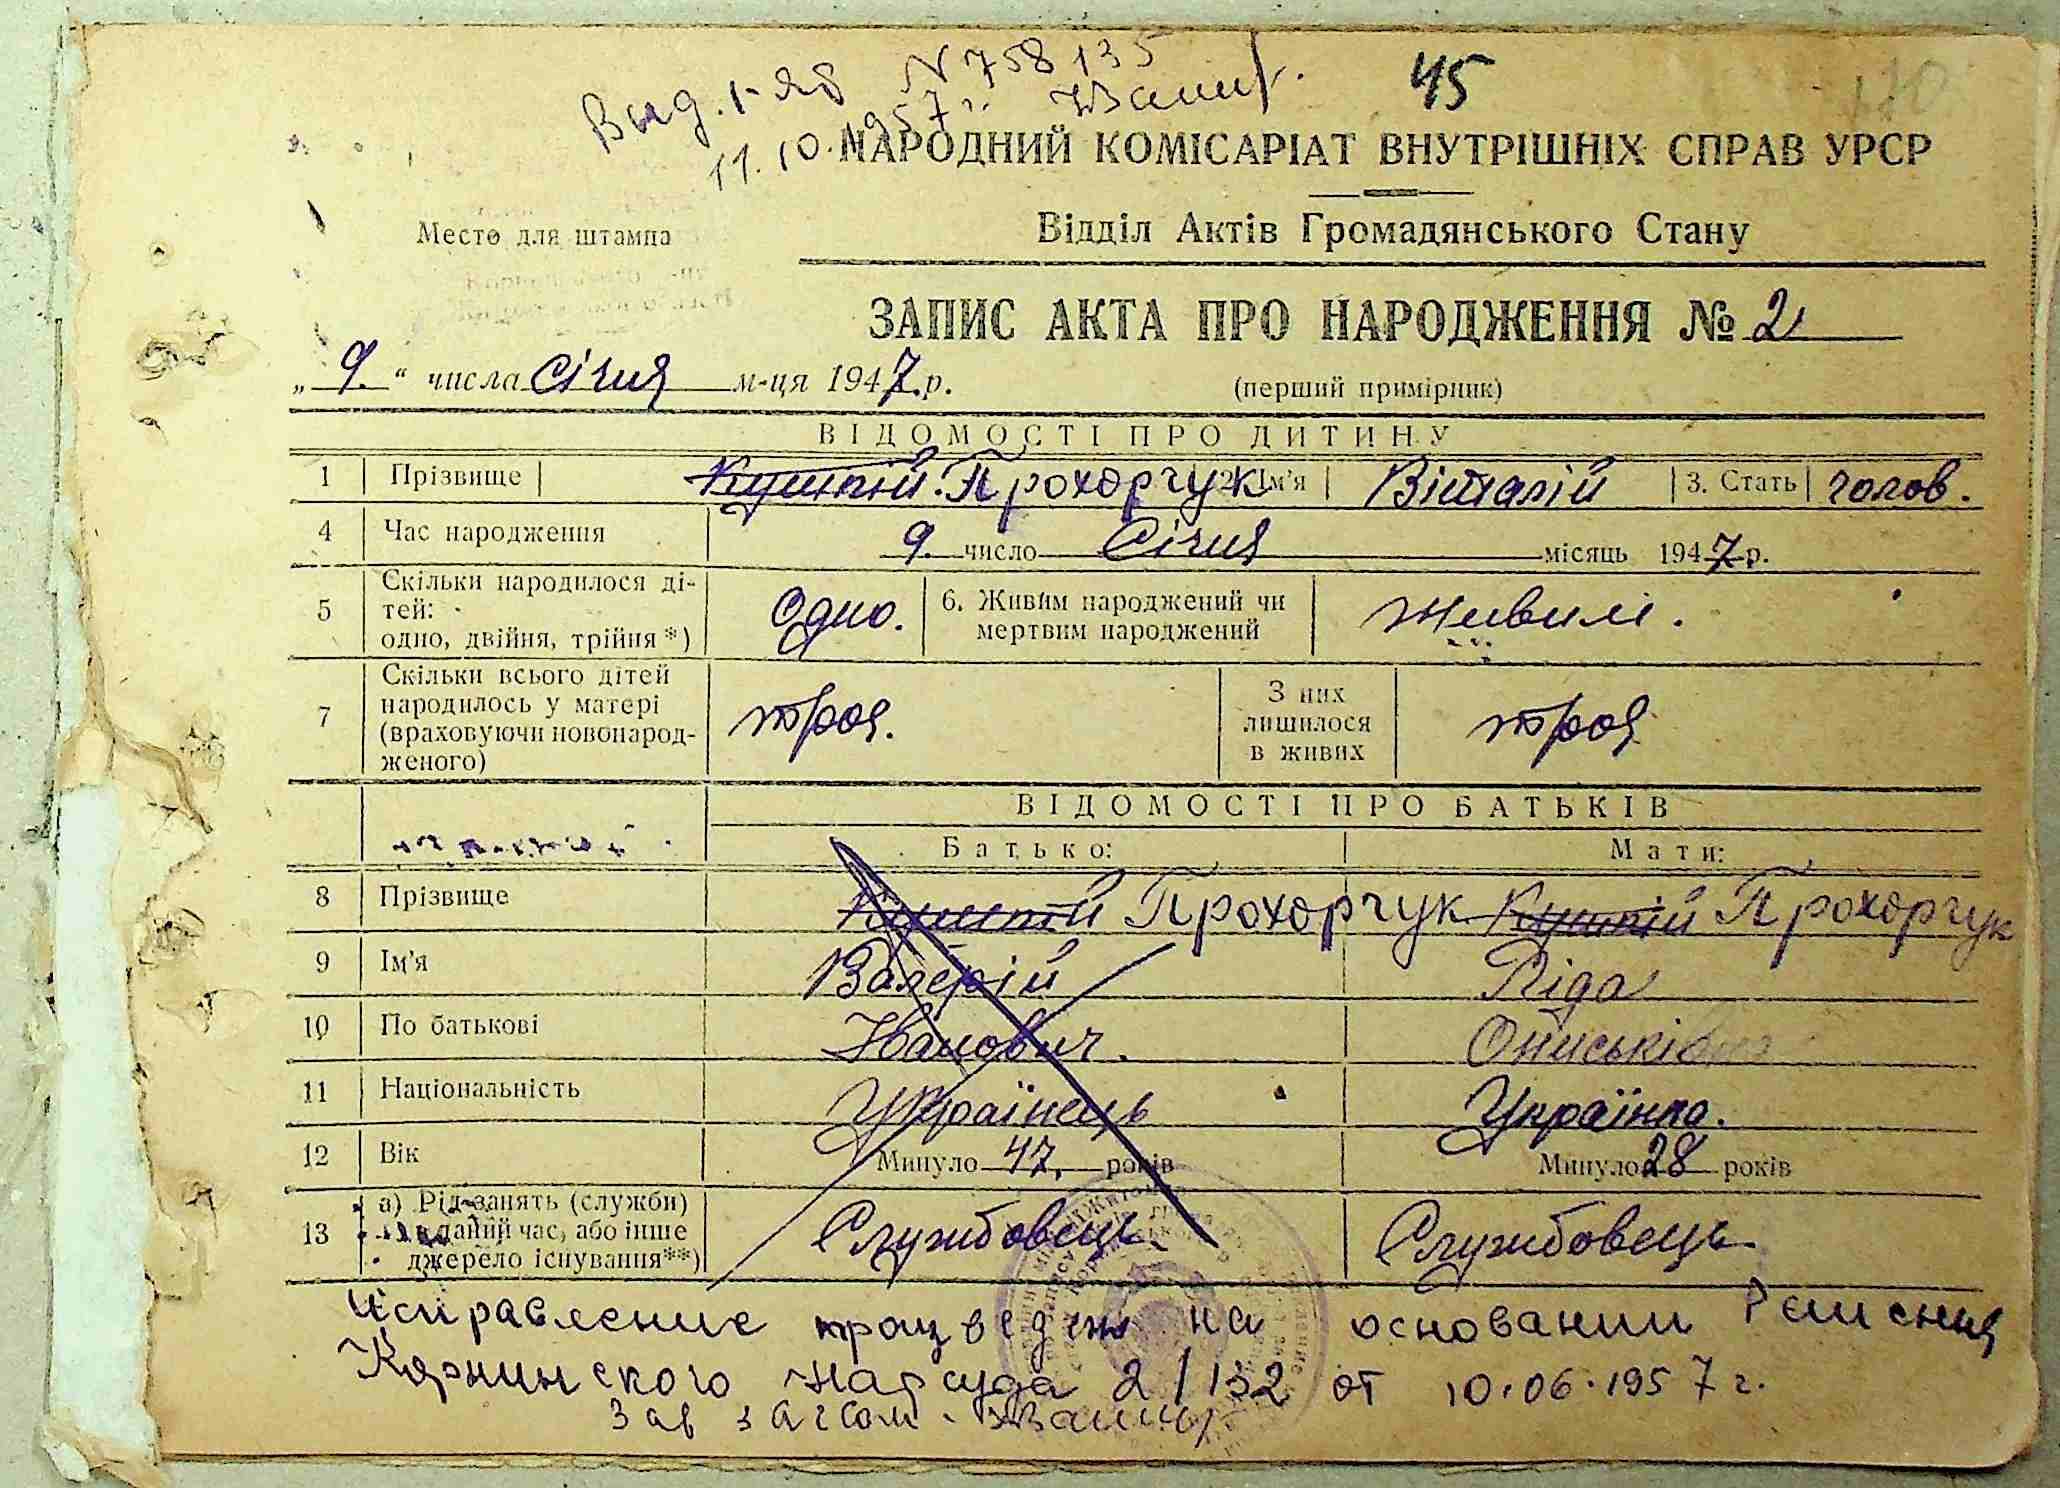 Выд. 1-яб N 758135
11.10.1957 г.
45
НАРОДНИЙ КОМІСАРІАТ ВНУТРІШНІХ СПРАВ УРСР
Место для штампа
Відділ Актів Громадянського Стану
ЗАПИС АКТА ПРО НАРОДЖЕННЯ № 2
„ 9. “ числа січня м-ця 1947.р.
(перший примірник)
ВІДОМОСТІ ПРО ДИТИНУ
1 Прізвище Прохорчук 2. Ім'я Віталій 3. Стать чолов.
4 Час народження 9. число Січня місяць 1947 р.
5 Скільки народилося ді-
тей:
одно, двійня, трійня *)
Одно.
6. Живим народжений чи
мертвим народжений
живим.
7 Скільки всього дітей
народилось у матері
(враховуючи новонарод-
женого)
троя.
З них
лишилося
в живих
троя
ВІДОМОСТІ ПРО БАТЬКІВ
Батько: Мати:
8 Прізвище Прохорчук Прохорчук
9 Ім'я Валерій Ліда
10 По батькові Іванович.
11 Національність Українець Українка.
12 Вік Минуло 47. років Минуло 28 років
13 а) Рід занять (служби)
в даний час, або інше
джерело існування**)
Службовець. Службовець.
Исправление произведен на основании Решения
Корнинского нарсуда 2/132 от 10.06.1957 г.
Зав загсом